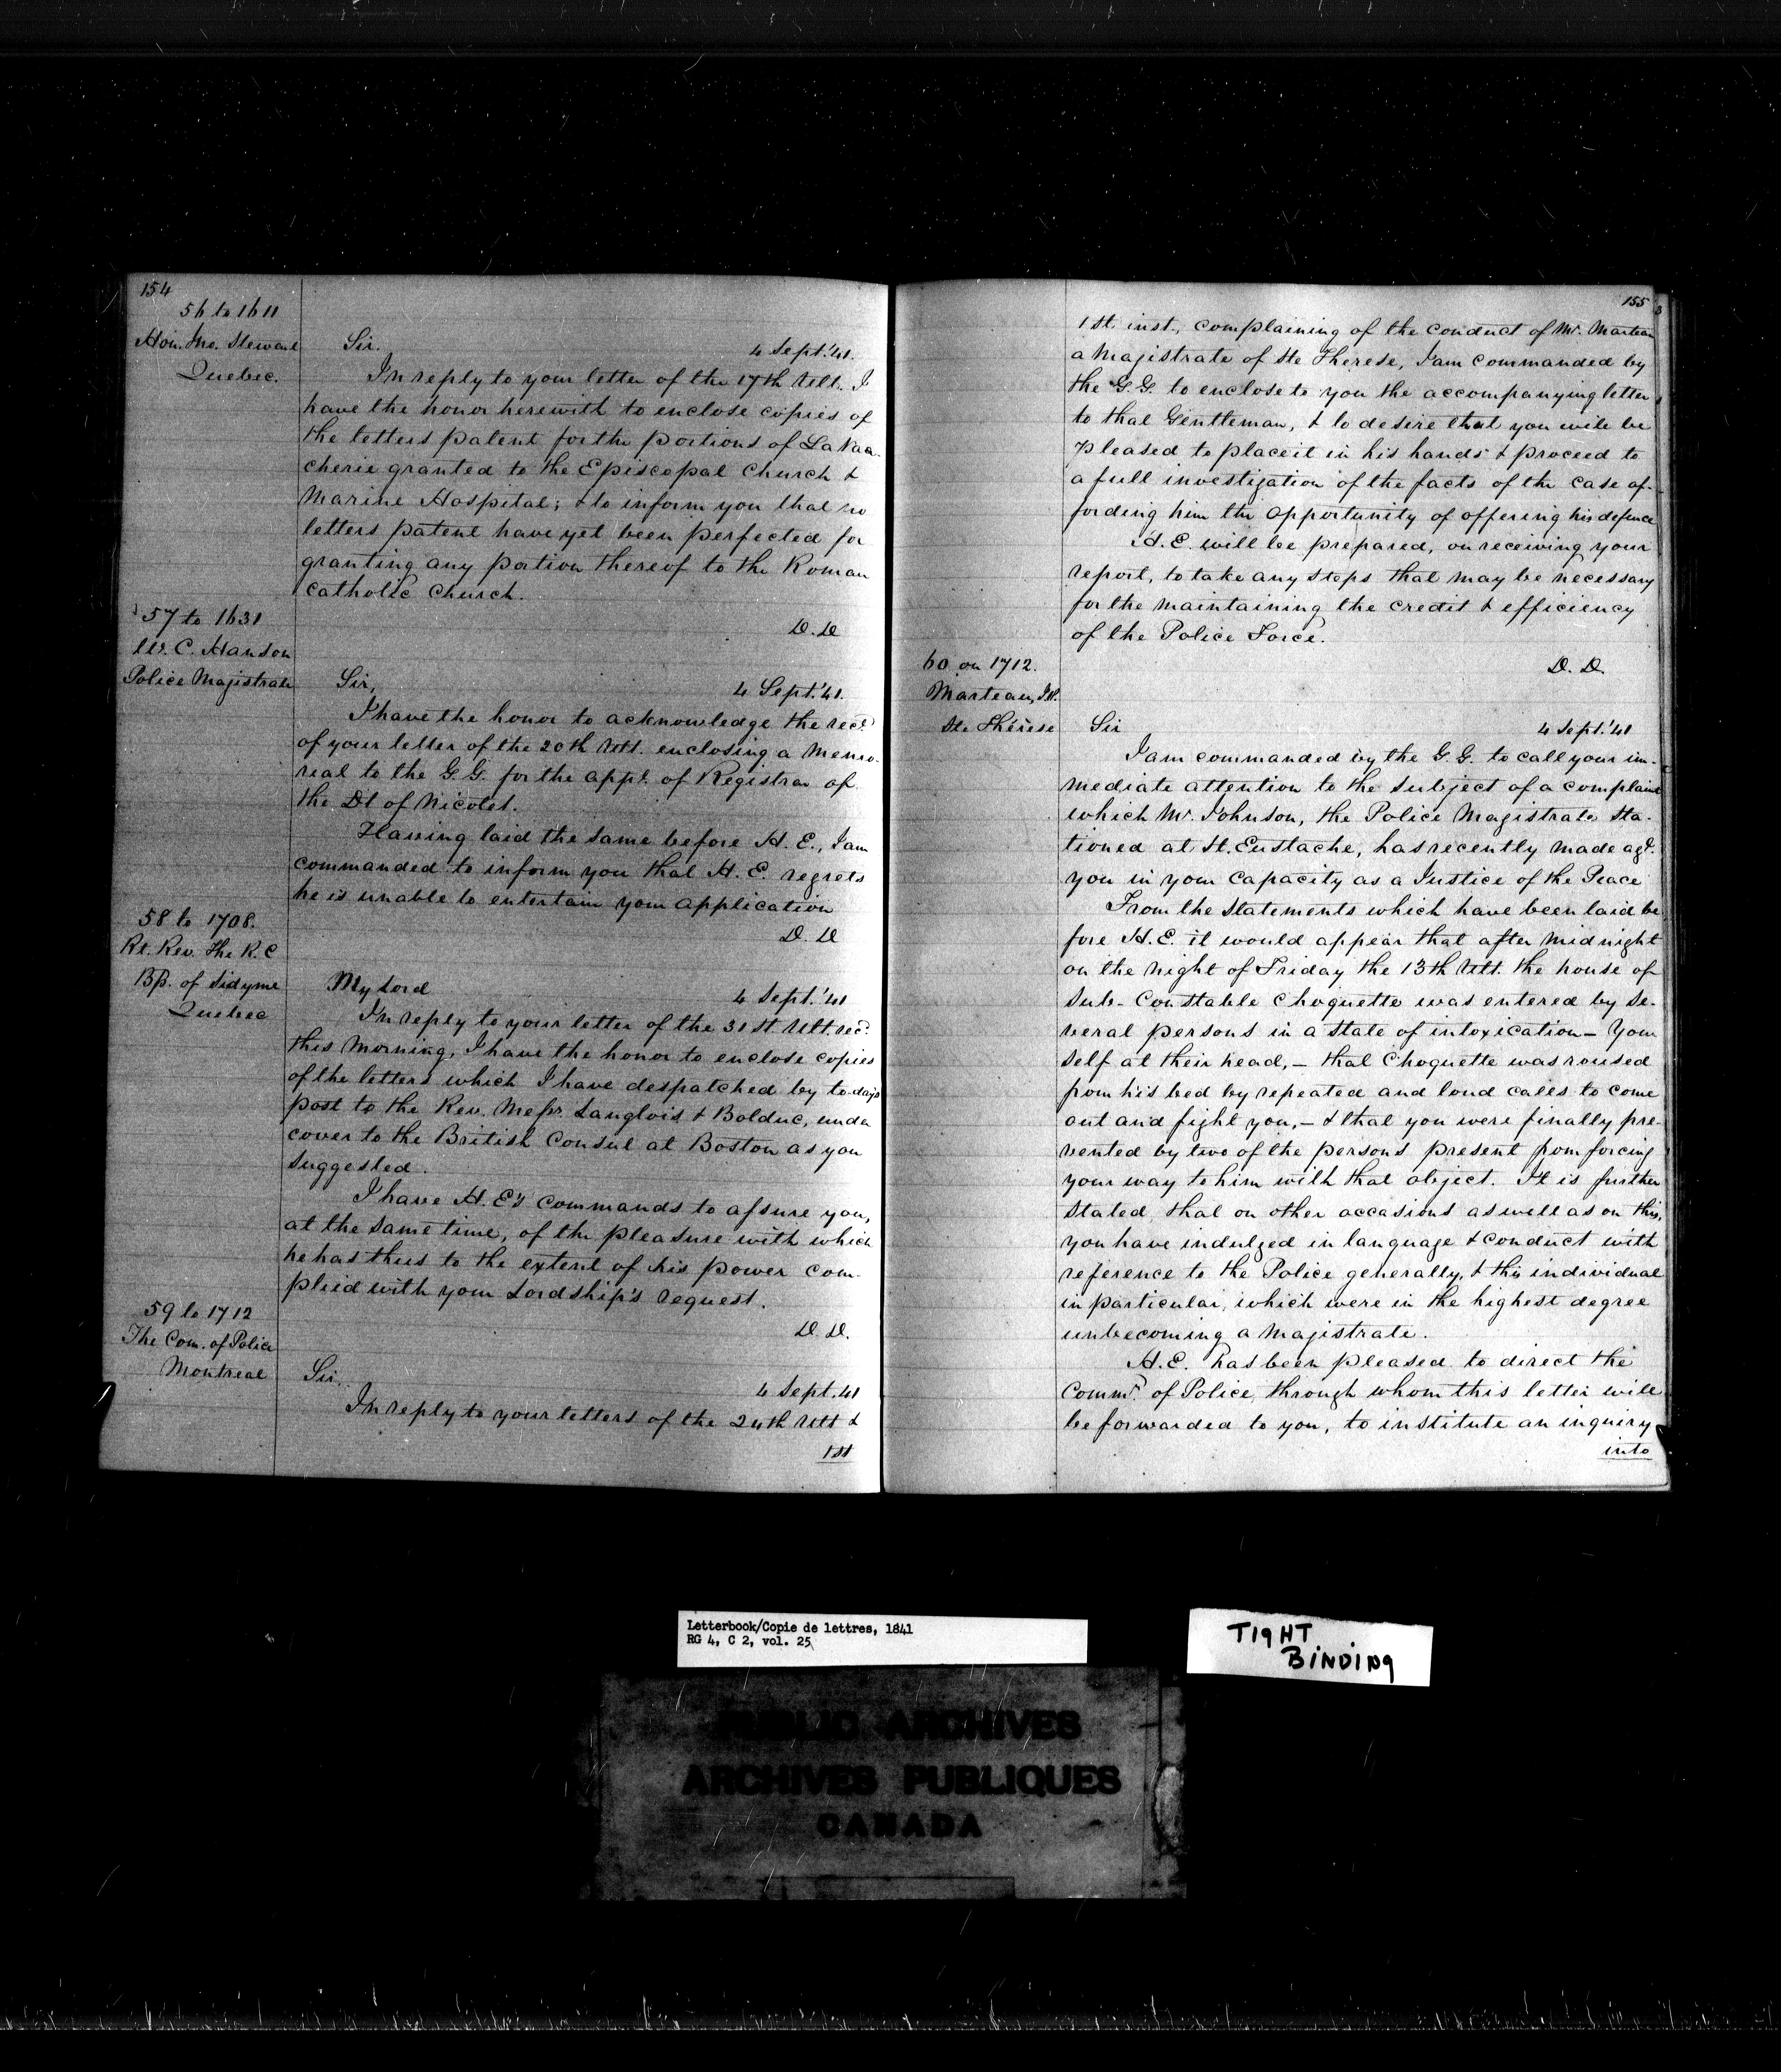 154
56 to 1611
Hon. Jno. Stewart
Quebec.
Sir.
4 Sept. '41.
In reply to your letter of the 17th Ult. I
have the honor herewith to enclose copies of
the letters patent for the portions of La Vaa-
cherie granted to the Episcopal Church &
Marine Hospital; & to inform you that no
letters patent have yet been perfected for
granting any portion thereof to the Roman
Catholic Church.
D. D
57 to 1631
W. C. Hanson
Police Magistrate
Sir,
4 Sept. '41.
I have the honor to acknowledge the rect.
of your letter of the 20th Ult. enclosing a Memo-
rial to the G. G. for the appt. of Registrar of
the Dt of Nicolet.
Having laid the same before H. E., I am
commanded to inform you that H. E. regrets
he is unable to entertain your application
D. D
58 to 1708.
Rt. Rev. The R. C
Bp. of Sidyme
Quebec
My Lord
4 Sept. '41
In reply to your letter of the 31st Ult. recd.
this Morning, I have the honor to enclose copies
of the letters which I have despatched by to-day's
post to the Rev. Messrs. Langlois & Bolduc, under
cover to the British Consul at Boston as you
suggested.
I have H. E's commands to assure you,
at the same time, of the pleasure with which
he has thus to the extent of his power com-
plied with your Lordship's request.
D. D.
59 to 1712
The Com. of Police
Montreal
Sir.
4 Sept. 41
In reply to your letters of the 24th Ult &
1st
155
1st inst., complaining of the conduct of Mr. Marteau
a Magistrate of Ste Therese, I am commanded by
the G. G. to enclose to you the accompanying letter
to that Gentleman, & to desire that you will be
pleased to place it in his hands & proceed to
a full investigation of the facts of the case af-
fording him the opportunity of offering his defence
H. E. will be prepared, on receiving your
report, to take any steps that may be necessary
for the maintaining the credit & efficiency
of the Police Force.
D. D.
60 on 1712.
Marteau, J.P.
Ste Thérèse
Sir
4 Sept. '41
I am commanded by the G. G. to call your im-
mediate attention to the subject of a complaint
which Mr. Johnson, the Police Magistrate sta-
tioned at St. Eustache, has recently made agt.
you in your capacity as a Justice of the Peace
From the statements which have been laid be-
fore H. E. it would appear that after midnight
on the night of Friday the 13th Ult. the house of
Sub-Constable Choquette was entered by se-
veral persons in a state of intoxication - Your
self at their head, - that Choquette was roused
from his bed by repeated and loud calls to come
out and fight you, - & that you were finally pre-
vented by two of the persons present from forcing
your way to him with that object. It is further
stated that on other occasions as well as on this,
you have indulged in language & conduct with
reference to the Police generally, & this individual
in particular, which were in the highest degree
unbecoming a Magistrate.
H. E. has been pleased to direct the
Commr. of Police, through whom this letter will
be forwarded to you, to institute an inquiry
into
Letterbook/Copie de lettres, 1841
RG 4, C 2, vol. 25
TIGHT
BINDING
PUBLIC ARCHIVES
ARCHIVES PUBLIQUES
CANADA